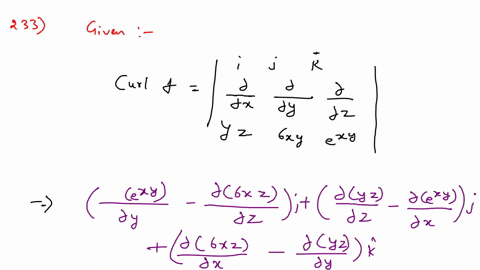 233) Given :-
i j k̂
Curl f = | ∂/∂x ∂/∂y ∂/∂z |
yz 6xy e^xy
→ ( (e^xy)/∂y - ∂(6xz)/∂z ) i + ( ∂(yz)/∂z - ∂(e^xy)/∂x ) j
+ ( ∂(6xz)/∂x - ∂(yz)/∂y ) k̂